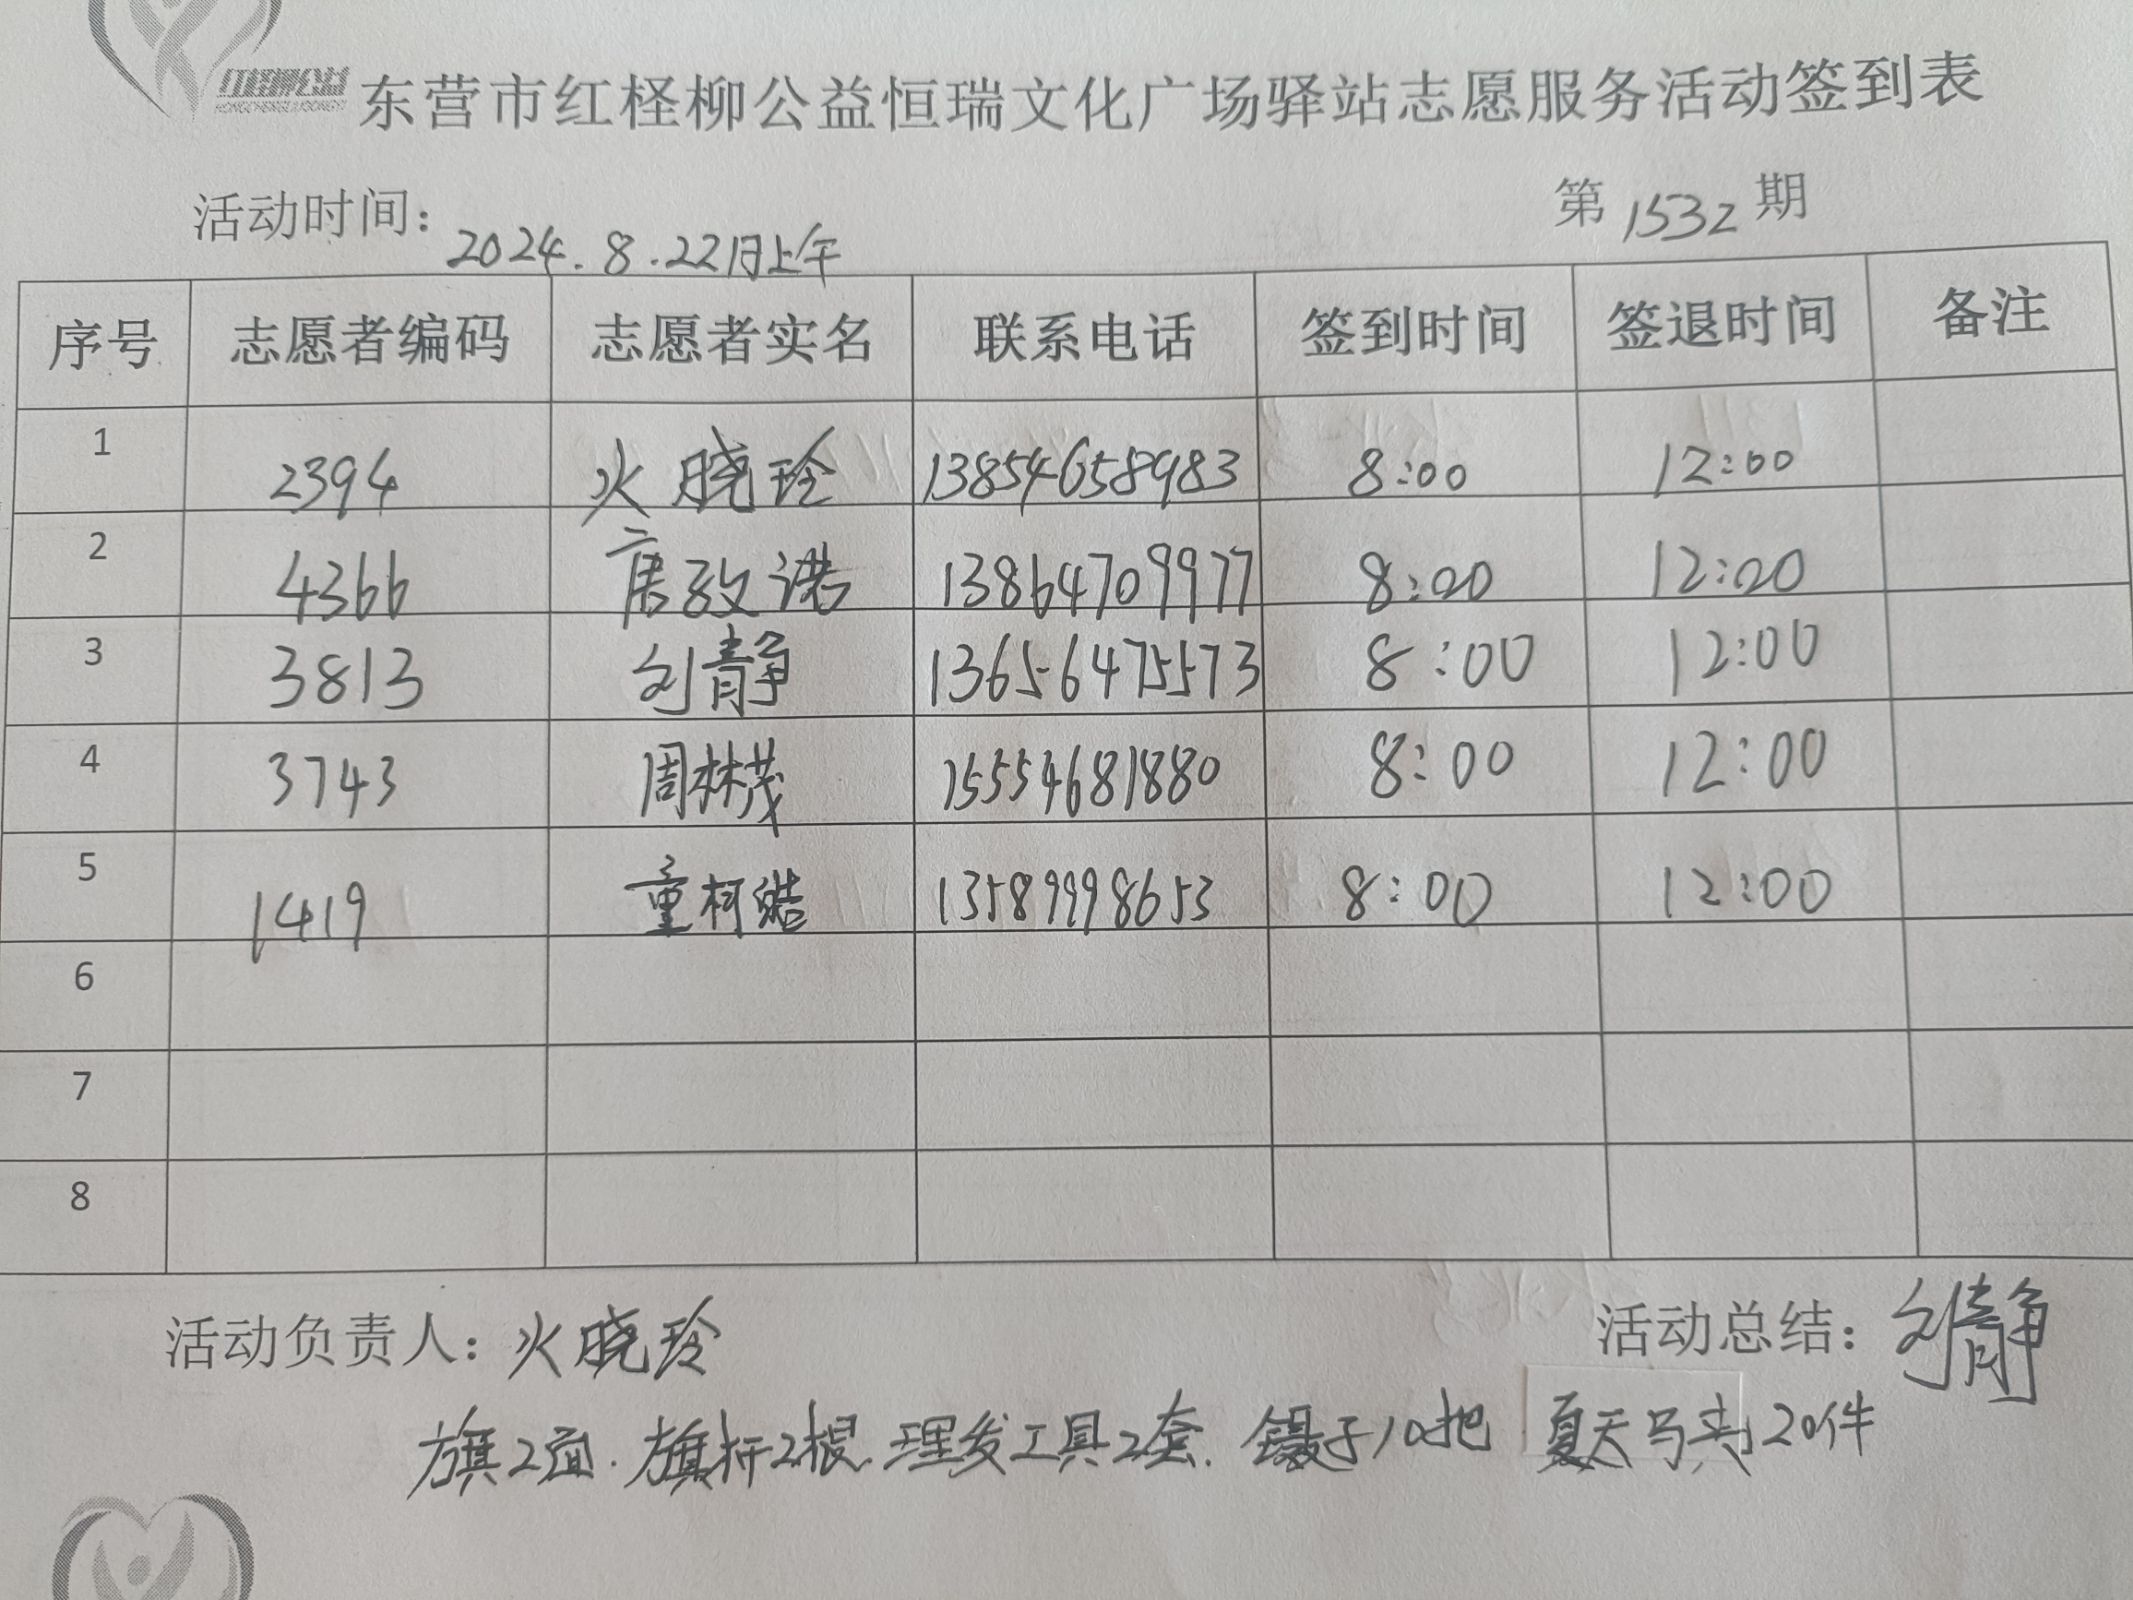 红柽柳公益
HONGCHENGLIUGONGYI
东营市红柽柳公益恒瑞文化广场驿站志愿服务活动签到表
活动时间：2024.8.22日上午 第1532期
序号 志愿者编码 志愿者实名 联系电话 签到时间 签退时间 备注
1 2394 火晓玲 13854658983 8:00 12:00
2 4366 唐致诺 13864709977 8:00 12:00
3 3813 刘静 13656475573 8:00 12:00
4 3743 周林茂 15554681880 8:00 12:00
5 1419 童柯皓 13589998653 8:00 12:00
6
7
8
活动负责人：火晓玲 活动总结：刘静
旗2面．旗杆2根．理发工具2套．镊子10把 夏天马夹20件